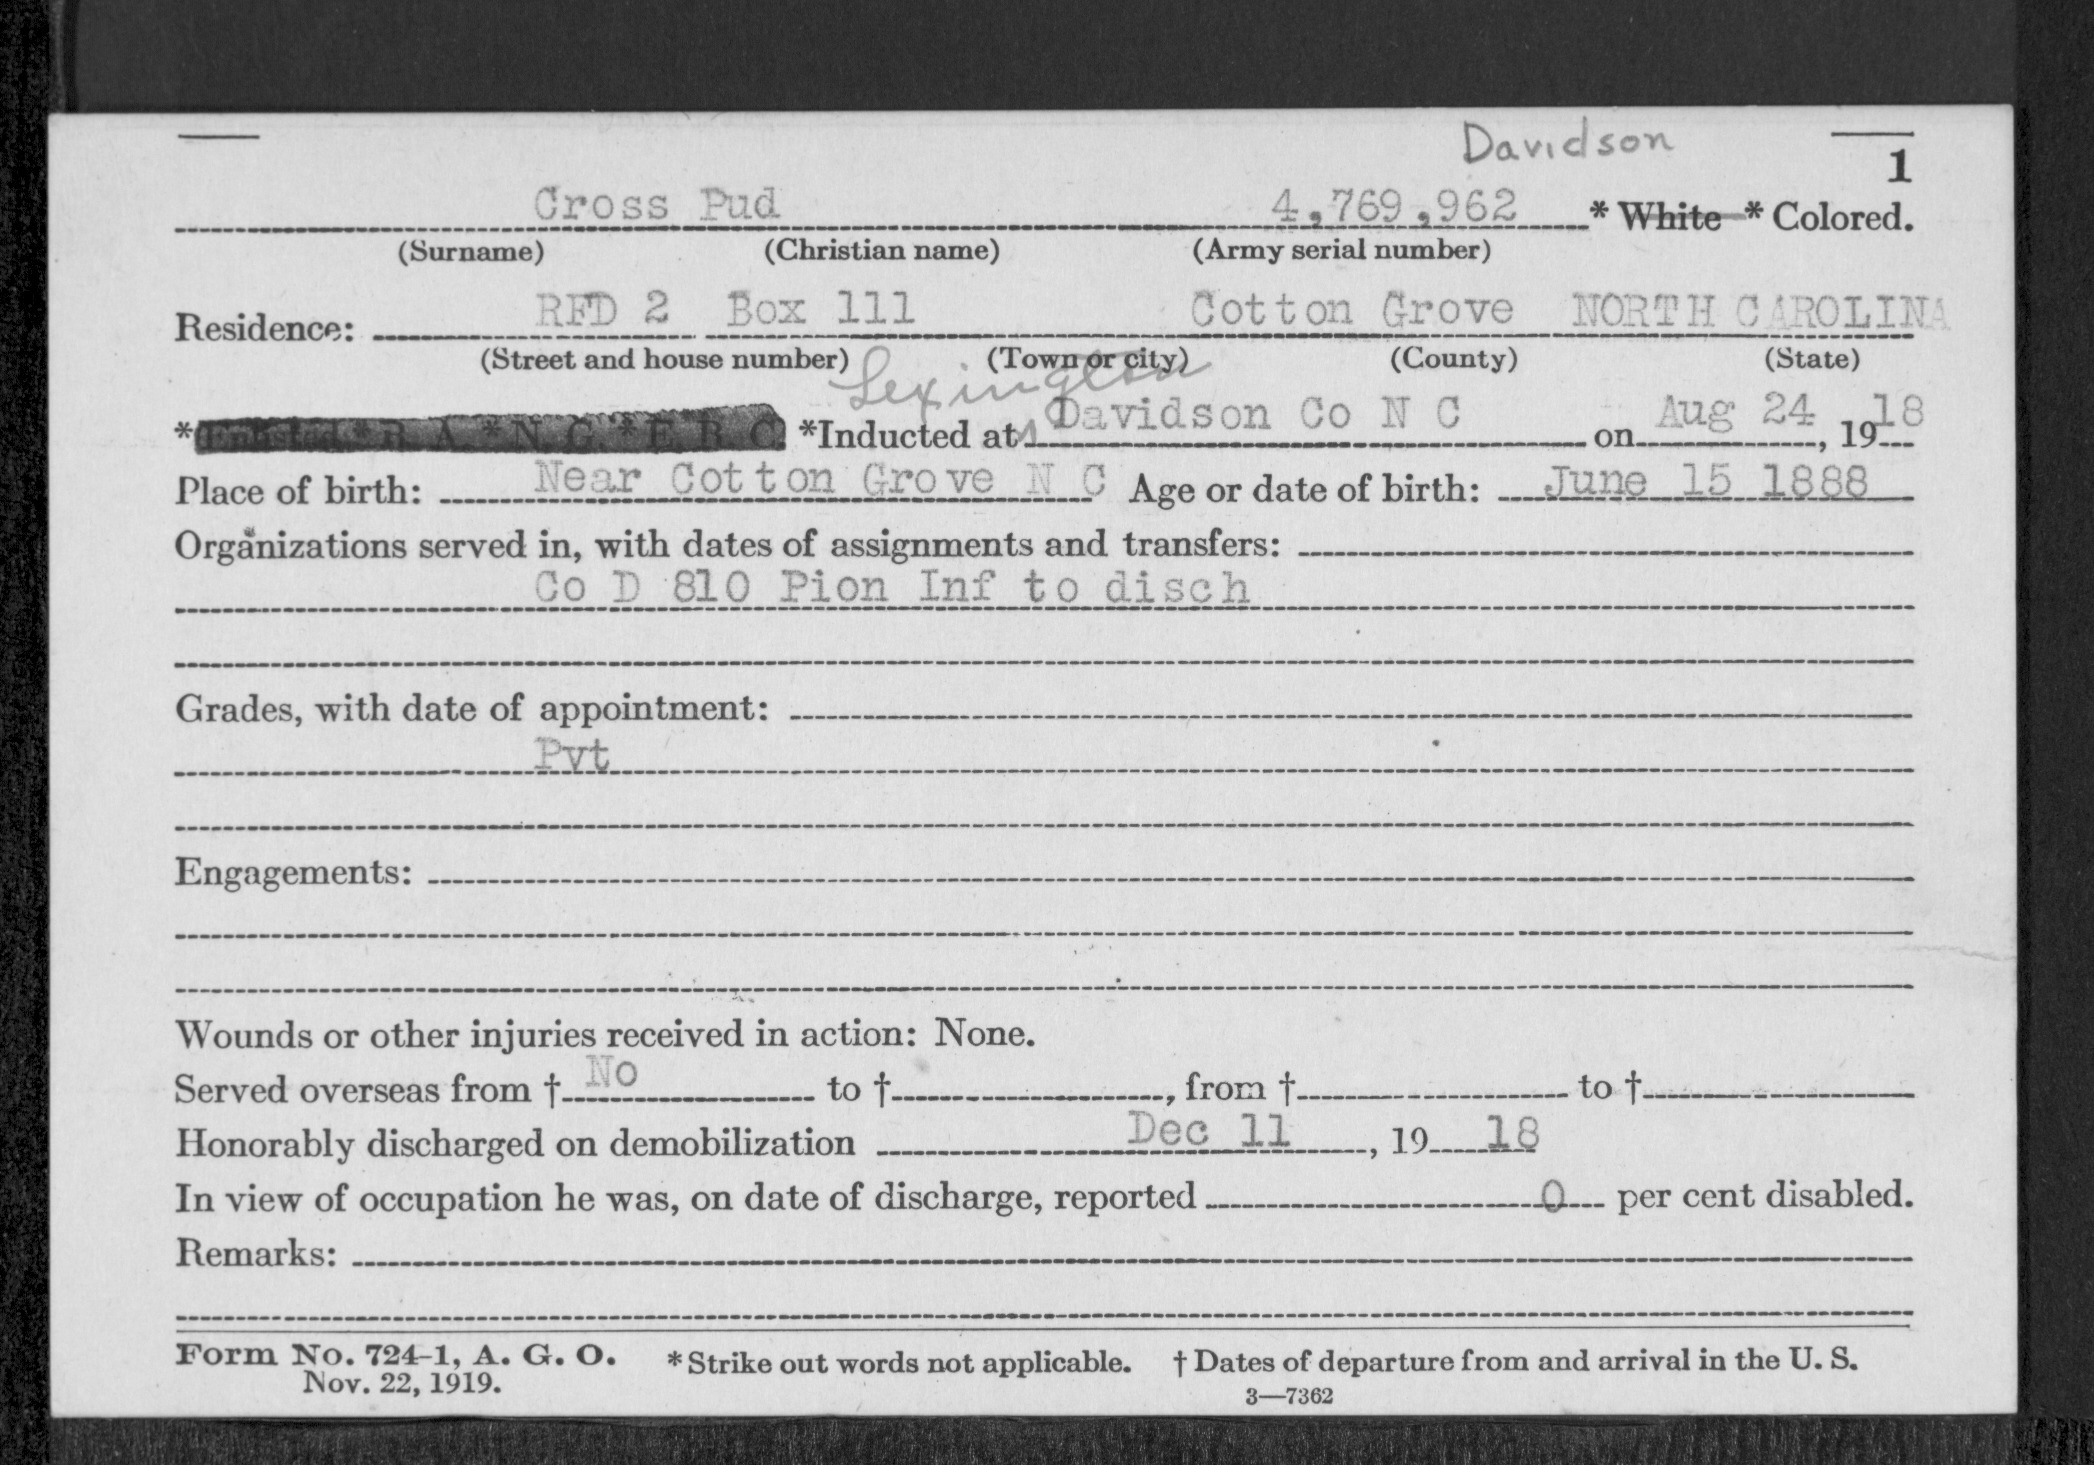 Davidson
1
Cross Pud 4,769,962 * White * Colored.
(Surname) (Christian name) (Army serial number)
Residence: RFD 2 Box 111 Cotton Grove NORTH CAROLINA
(Street and house number) (Town or city) (County) (State)
Lexington
*Enlisted *R. A. *N. G. *E. R. C. *Inducted at Davidson Co N C on Aug 24, 1918
Place of birth: Near Cotton Grove N C Age or date of birth: June 15 1888
Organizations served in, with dates of assignments and transfers:
Co D 810 Pion Inf to disch
Grades, with date of appointment:
Pvt
Engagements:
Wounds or other injuries received in action: None.
Served overseas from † No to †, from † to †
Honorably discharged on demobilization Dec 11, 19 18
In view of occupation he was, on date of discharge, reported 0 per cent disabled.
Remarks:
Form No. 724-1, A. G. O. *Strike out words not applicable. † Dates of departure from and arrival in the U. S.
Nov. 22, 1919. 3—7362